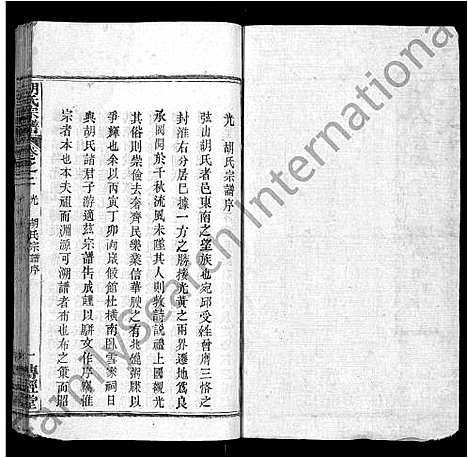 光　胡氏宗譜序
弦山胡氏者邑東南之望族也宛邱受姓曾膺三恪之
封淮右分居已據一方之勝接光黃之兩界遷地爲良
承閥閱於千秋流風未墜其人則敦詩說禮上國觀光
其俗則崇儉去奢齊民樂業信華駛之有北魏湖騄以
爭輝也余以丙寅丁卯兩歲假館杜橫南臥雲家祠日
與胡氏諸君子游適茲宗譜告成謹以駢文作序竊惟
宗者本也本夫祖而淵源可溯譜者布也布之策而昭
胡氏宗譜
卷之一
光　胡氏宗譜序
一
傳經堂
FamilySearch International